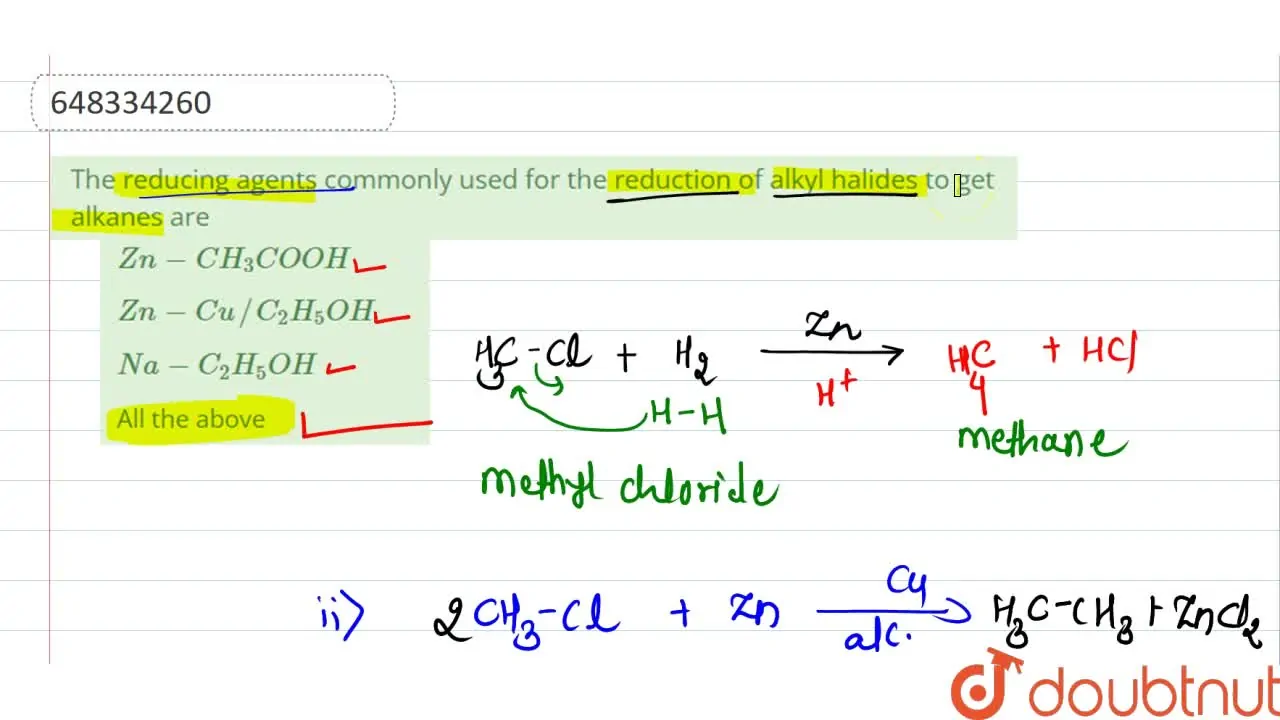 648334260
The reducing agents commonly used for the reduction of alkyl halides to get
alkanes are
Zn − CH₃COOH
Zn − Cu/C₂H₅OH
Na − C₂H₅OH
All the above
H₃C-Cl + H₂ Zn H⁺ H₄C + HCl
H-H
methyl chloride
methane
ii> 2CH₃-Cl + Zn Cu alc. H₃C-CH₃ + ZnCl₂
doubtnut